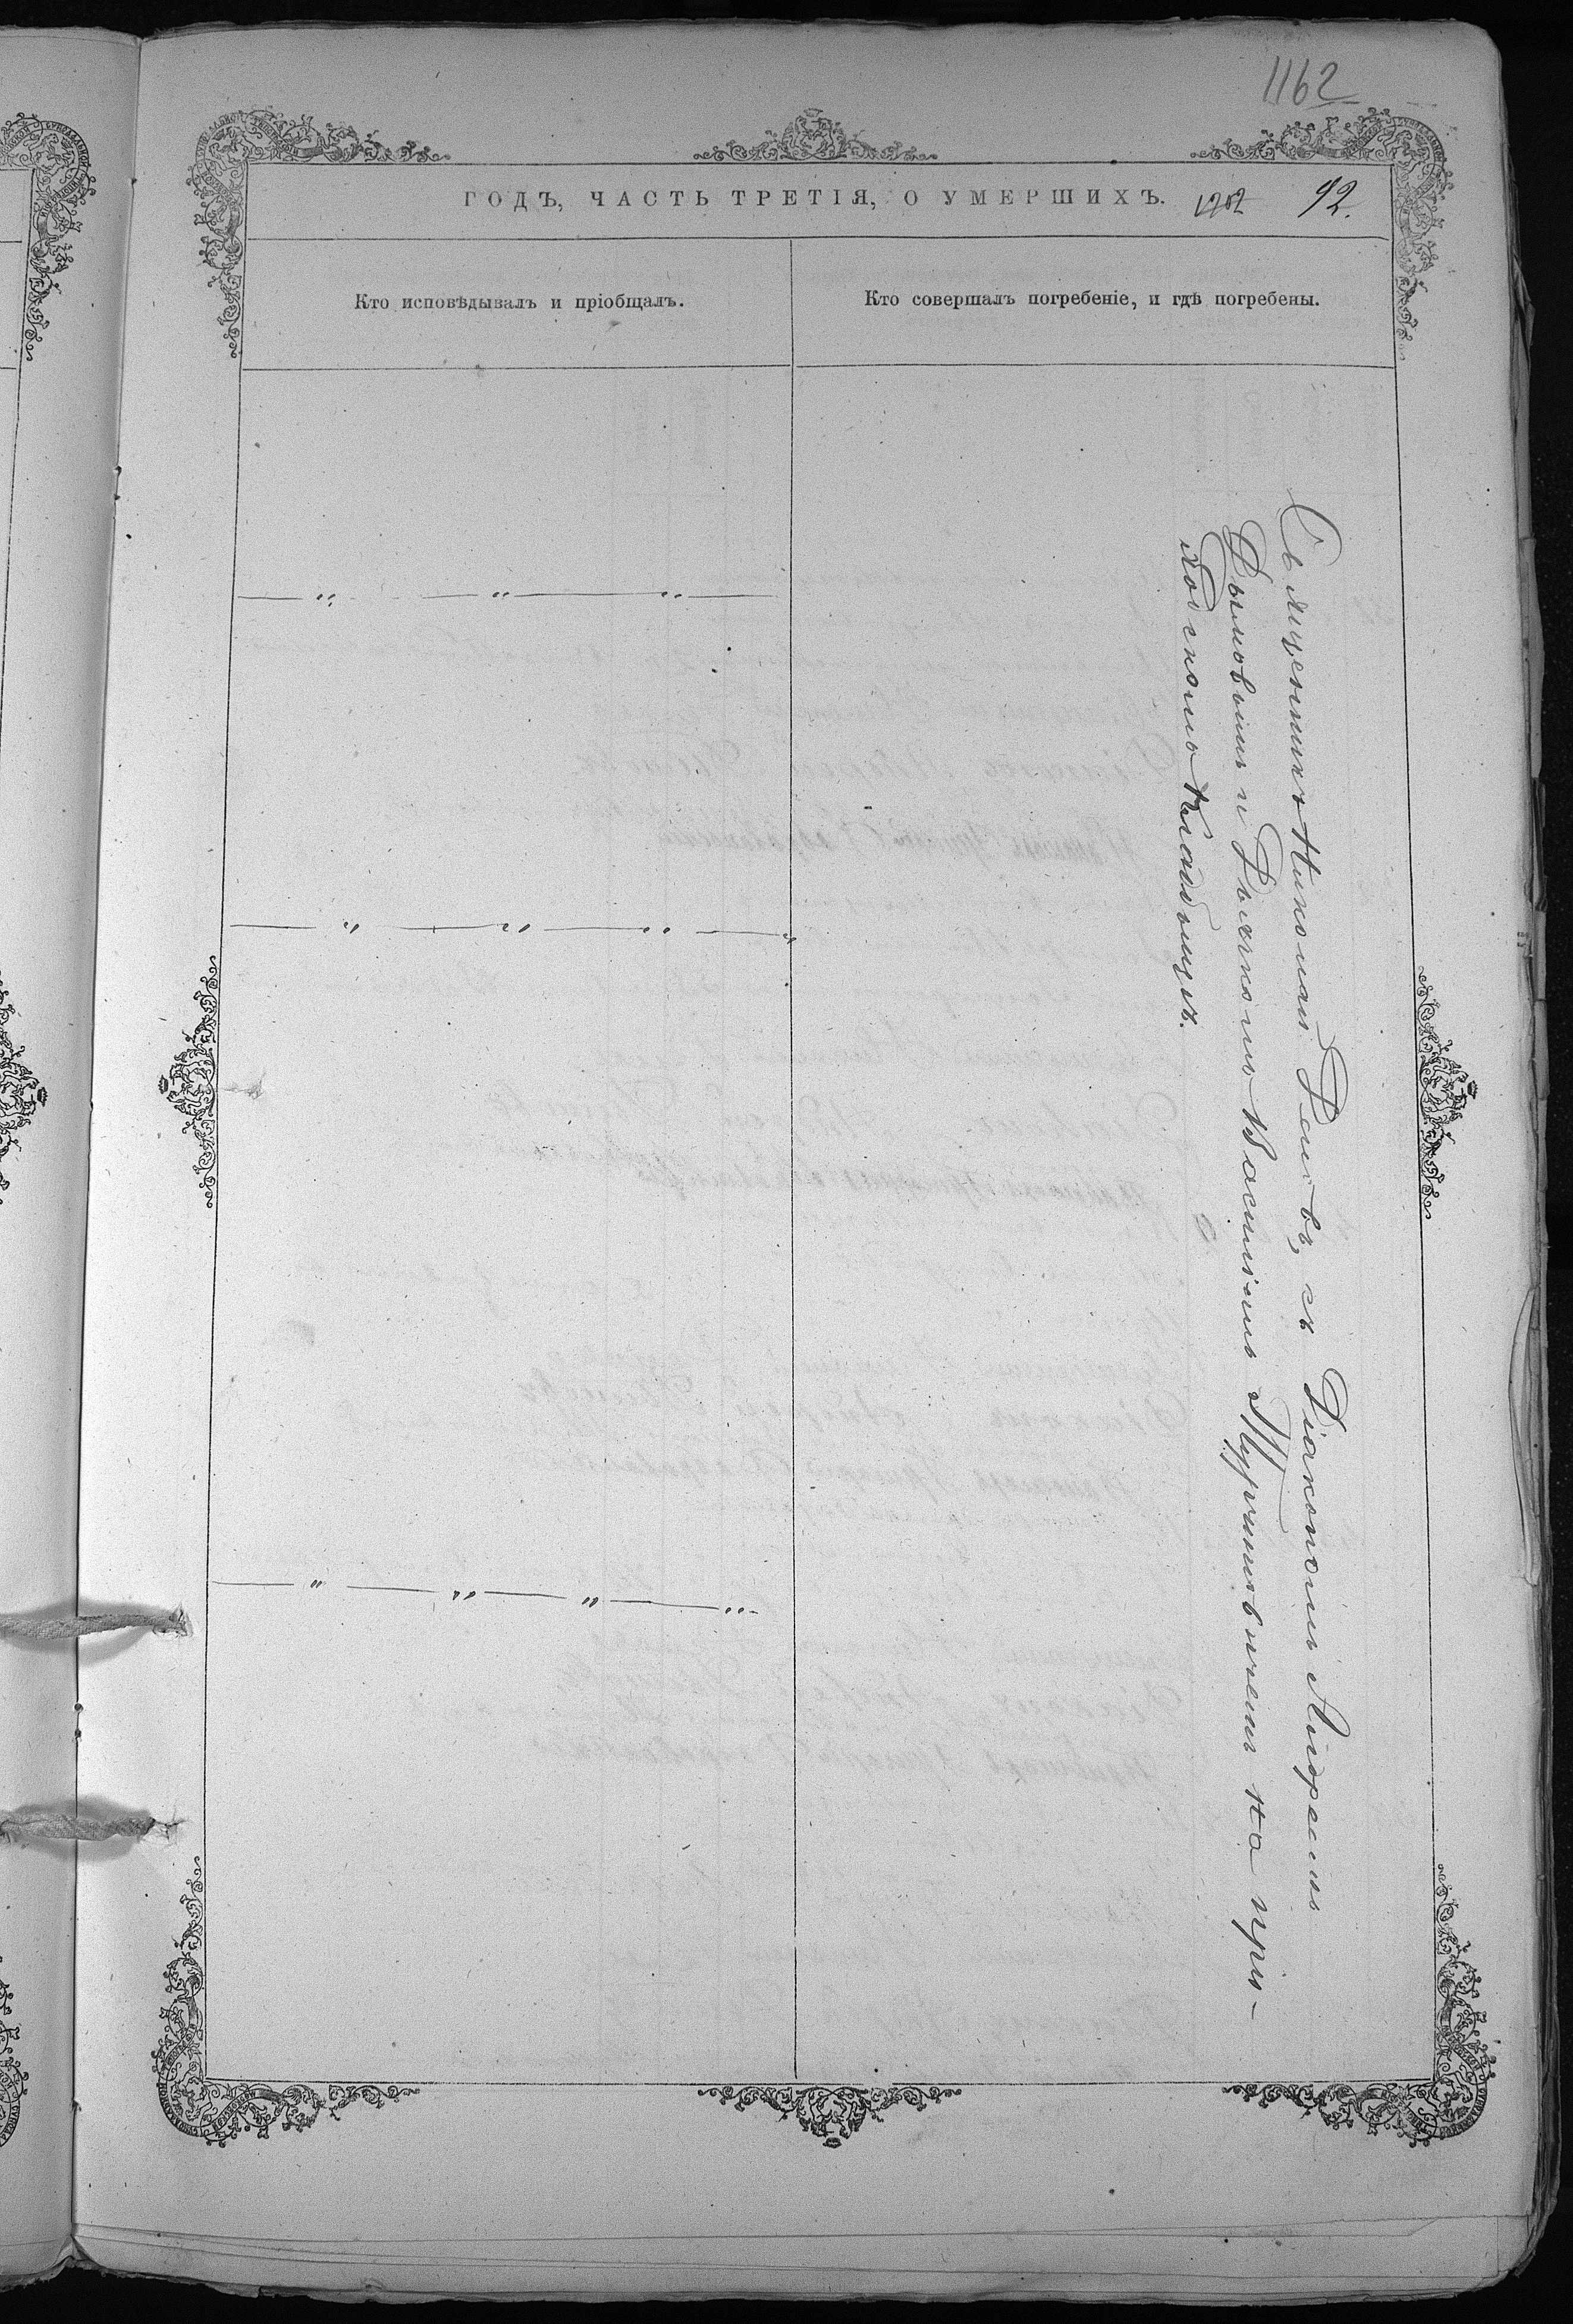 1162
ГОДЪ, ЧАСТЬ ТРЕТІЯ, О УМЕРШИХЪ. 92.
Кто исповѣдывалъ и пріобщалъ.
Кто совершалъ погребеніе, и гдѣ погребены.
Священникъ Николай съ Діакономъ Андреемъ
и Дьячкомъ Василіемъ на при-
ходскомъ Кладбищѣ.